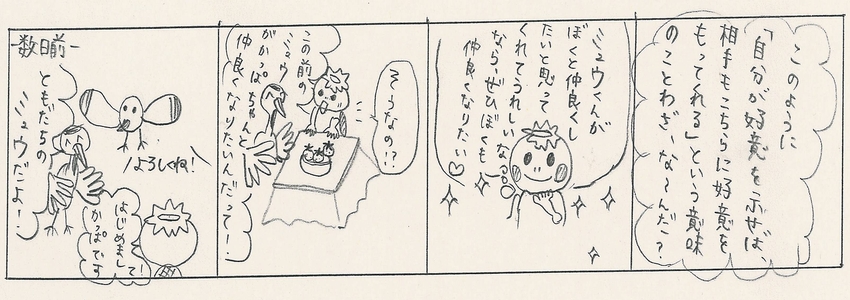 このように
「自分が好意を示せば、
相手もこちらに好意を
もってくれる」という意味
のことわざ、な〜んだ?
ミュウくんが
ぼくと仲良くし
たいと思って
くれてうれしいなぁ
なら、ぜひぼくも
仲良くなりたい♡
そうなの!?
この前の
ミュウ
がかっぱちゃんと
仲良くなりたいんだって!
ー数日前ー
ともだちの
ミュウだよー!
よろしくね!
はじめまして!
かっぱです